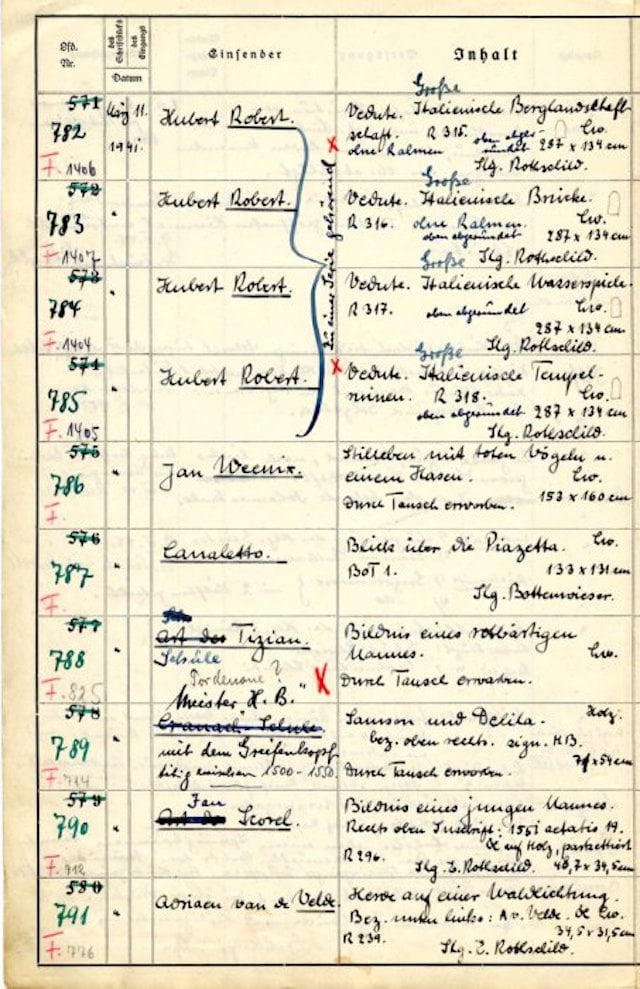 Lfd. Nr.
des Schriftstücks
des Eingangs
Datum
Einsender
Inhalt
571
782
F. 1406
März 11.
1941.
Hubert Robert.
Große
Vedute. Italienische Berglandschaft
schaft. R 315. oben abge-
rundet Lw.
ohne Rahmen 287 x 134 cm
Slg. Rothschild.
Zu einer Serie gehörend
572
783
F. 1407
"
Hubert Robert.
Große
Vedute. Italienische Brücke.
R 316. ohne Rahmen. Lw.
oben abgerundet 287 x 134 cm
Slg. Rothschild.
573
784
F. 1404
"
Hubert Robert.
Große
Vedute. Italienische Wasserspiele.
R 317. oben abgerundet Lw.
287 x 134 cm
Slg. Rothschild.
574
785
F. 1405
"
Hubert Robert.
Große
Vedute. Italienische Tempel-
ruinen. R 318. Lw.
oben abgerundet 287 x 134 cm
Slg. Rothschild.
575
786
F.
"
Jan Weenix.
Stilleben mit toten Vögeln u.
einem Hasen. Lw.
Durch Tausch erworben. 153 x 160 cm
576
787
F.
"
Canaletto.
Blick über die Piazetta. Lw.
BoT 1. 133 x 131 cm
Slg. Bottenwieser.
577
788
F. 825
"
Art des Tizian.
Schule
Pordenone?
Bildnis eines rotbärtigen
Mannes. Lw.
Durch Tausch erworben.
578
789
F. 714
"
Meister "H. B."
Cranach-Schule.
mit dem Greifenkopf
tätig zwischen 1500-1550
Samson und Delila. Holz.
bez. oben rechts. sign. H.B.
x 54 cm
Durch Tausch erworben.
579
790
F. 912
"
Jan
Art des Scorel.
Bildnis eines jungen Mannes.
Rechts oben Inschrift: 1551 aetatis 19.
Öl auf Holz, parkettiert
R 296. Slg. E. Rothschild. 48,7 x 34,5 cm
580
791
F. 776
"
Adriaen van de Velde.
Herde auf einer Waldlichtung.
Bez. unten links: A.v. Velde. Öl Lw.
R 239. 34,5 x 31,5 cm
Slg. E. Rothschild.